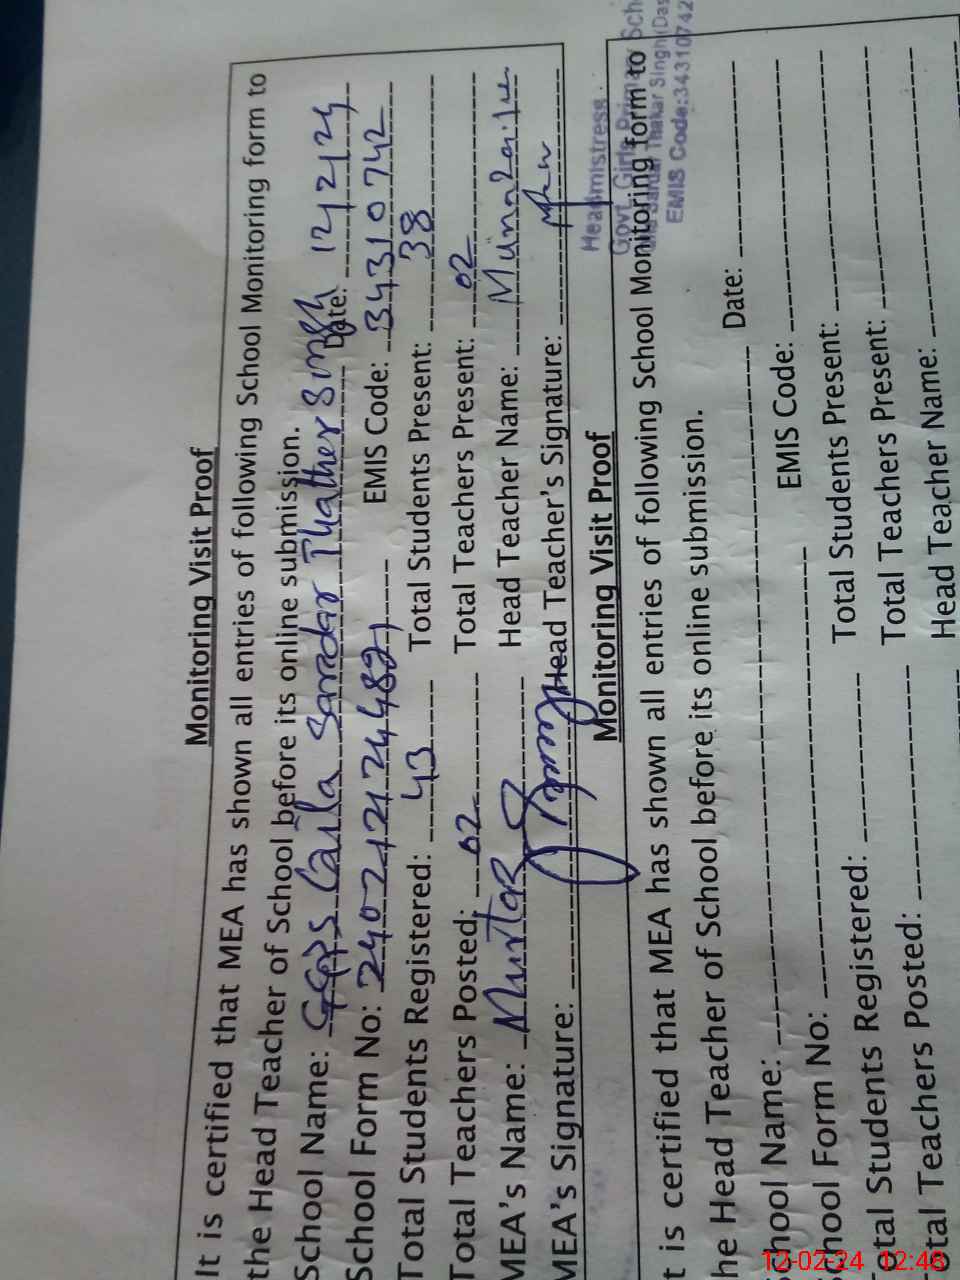 Monitoring Visit Proof
It is certified that MEA has shown all entries of following School Monitoring form to
the Head Teacher of School before its online submission.
School Name: GGPS Qila Sardar Thather Singh Date: 12/2/24
School Form No: 240212124482 EMIS Code: 34310742
Total Students Registered: 43 Total Students Present: 38
Total Teachers Posted: 02 Total Teachers Present: 02
MEA's Name: Mumtaz Head Teacher Name:
MEA's Signature: Head Teacher's Signature:
Headmistress
Govt. Girls Primary Sch
Sardar Thakar Singh (Das
EMIS Code:34310742
Monitoring Visit Proof
t is certified that MEA has shown all entries of following School Monitoring form to
he Head Teacher of School before its online submission.
School Name: Date:
School Form No: EMIS Code:
Total Students Registered: Total Students Present:
Total Teachers Posted: Total Teachers Present:
Head Teacher Name:
12-02-24 12:48